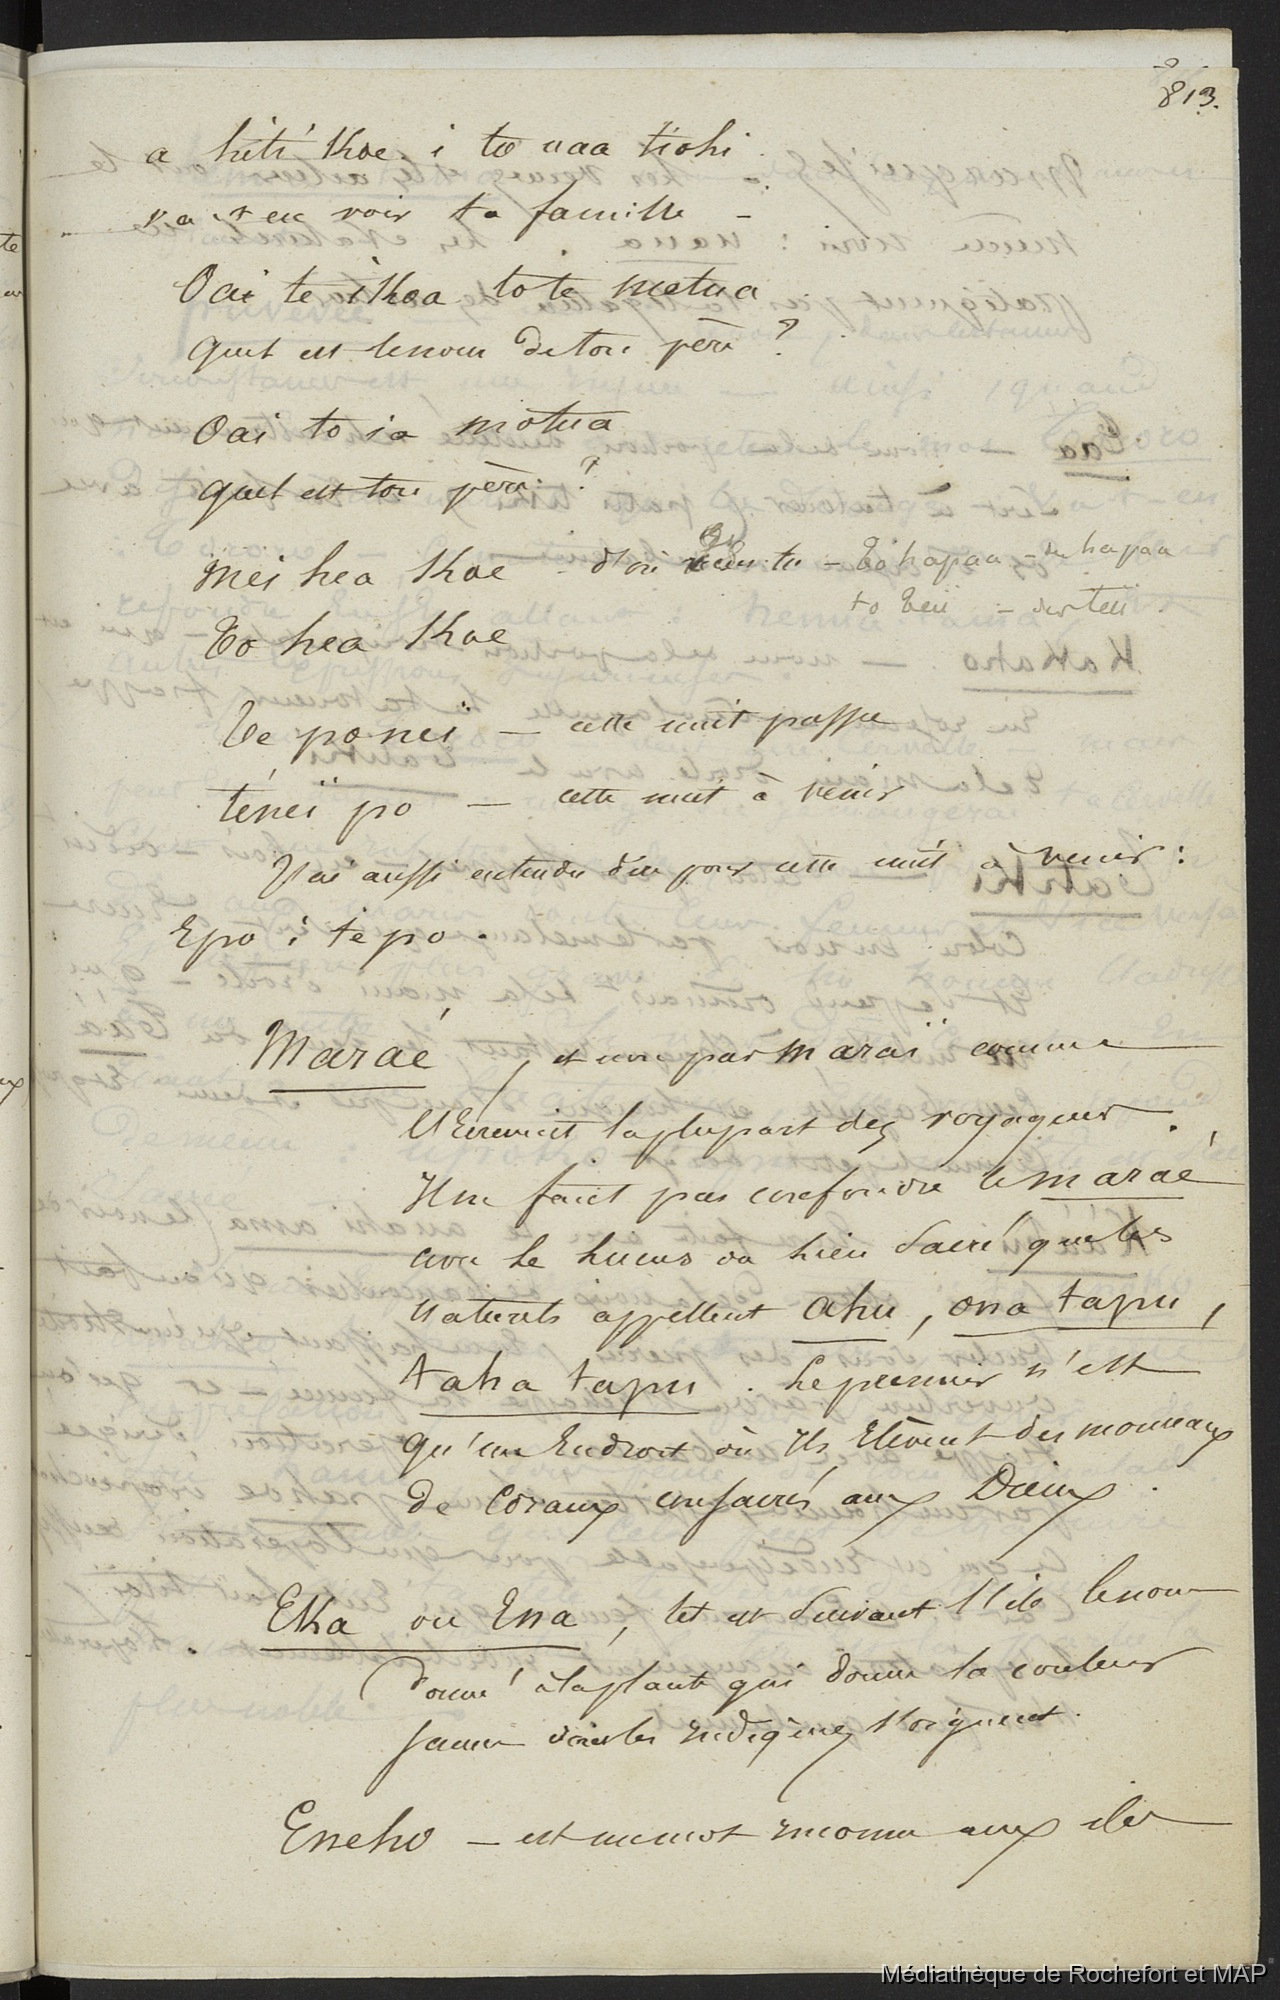 813.
a hiti Koe i to uaa tiohi
va t'en voir ta famille –
Oai te iKoa tote metua
quel est lenom deton père ?
Oai to ia motua
quel est ton père ?
Mei hea Koe – d'où es-tu – to hapaa – des hapaa
to teii – des teii.
to hea Koe
te po nei – cette nuit passée
ténei po – cette nuit à venir
J'ai aussi entendu dire pour cette nuit à venir :
Epo i te po.
Maraé, et non pas maraï comme
l'écrivent laplupart des voyageurs.
Il ne faut pas confondre le maraé
avec le lucus ou lieu sacré queles
naturels appellent ahu, ona tapu,
taha tapu. Lepremier n'est
qu'un Endroit où Ils Elèvent des monceaux
de Coraux consacrés aux Dieux.
EKa ou Ena, tel est suivant l'ile lenom
donné àlaplante qui donne la couleur
jaune dont les indigènes s'oignent.
Eneho – est un mot inconnu aux iles
Médiathèque de Rochefort et MAP